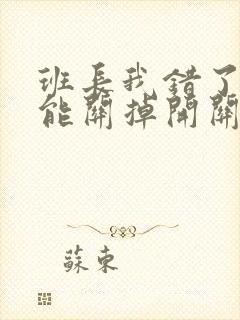 班長我錯了
能關掉開關
蘇東